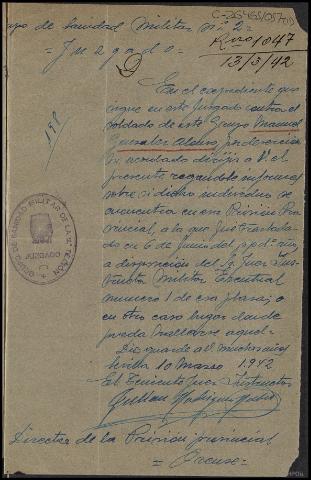 C-25465/057019
upo de Sanidad Militar nº 2 =
Rº 1047
= Juzgado =
13/3/42
En el expediente que
sigue en este Juzgado contra el
soldado de este Grupo Manuel
Gonzalez Alonso, por deserción
he acordado dirijir a V. el
presente rogandole informes
sobre si dicho individuo se
encuentra en esa Prisión Pro
vincial, a la que fue traslada
do en 6 de Junio del pp. año,
a disposición del Sr. Juez Ins
tructor Militar Eventual
numero 1 de esa plaza; o
en otro caso lugar donde
pueda hallarse aquel=
Dios guarde a V. muchos años
Sevilla 10 Marzo 1.942
El Teniente Juez Instructor
Julian Rodriguez
GRUPO DE SANIDAD MILITAR DE LA 2ª REGIÓN
JUZGADO
Director de la Prisión provincial
= Orense =